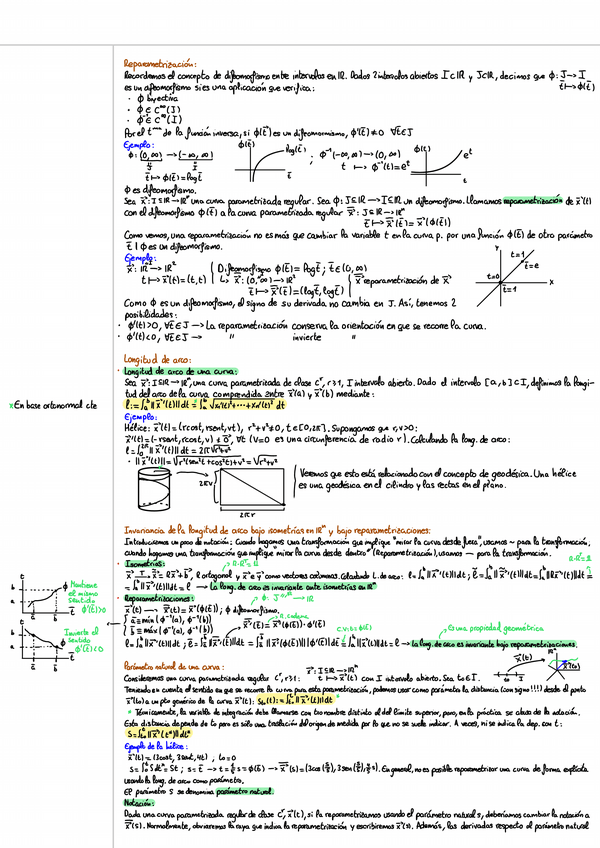 Reparametrización:
Recordemos el concepto de difeomorfismo entre intervalos en ℝ. Dados 2 intervalos abiertos I⊂ℝ y J⊂ℝ, decimos que ϕ: J → I
t̄ ↦ ϕ(t̄)
es un difeomorfismo si es una aplicación que verifica:
· ϕ biyectiva
· ϕ ∈ C^∞(J)
· ϕ⁻¹ ∈ C^∞(I)
Por el t^ma de la función inversa, si ϕ(t̄) es un difeomorfismo, ϕ'(t̄) ≠ 0 ∀t̄∈J
Ejemplo:
ϕ: (0,∞) → (-∞,∞)
J I
t̄ ↦ ϕ(t̄) = log t̄
ϕ(t̄)
log(t̄)
t̄
; ϕ⁻¹ (-∞,∞) → (0,∞)
t ↦ ϕ⁻¹(t) = e^t
ϕ(t)
e^t
t
ϕ es difeomorfismo.
Sea x⃗: I⊂ℝ → ℝⁿ una curva parametrizada regular. Sea ϕ: J⊂ℝ → I⊂ℝ un difeomorfismo. Llamamos reparametrización de x⃗(t)
con el difeomorfismo ϕ(t̄) a la curva parametrizada regular x̄⃗: J⊂ℝ → ℝⁿ
t̄ ↦ x̄⃗(t̄) = x⃗(ϕ(t̄))
Como vemos, una reparametrización no es más que cambiar la variable t en la curva p. por una función ϕ(t̄) de otro parámetro
t̄ | ϕ es un difeomorfismo.
Ejemplo:
x⃗: ℝ → ℝ²
t ↦ x⃗(t) = (t,t)
Difeomorfismo ϕ(t̄) = log t̄ ; t̄ ∈ (0,∞)
↳ x̄⃗: (0,∞) → ℝ²
t̄ ↦ x̄⃗(t̄) = (log t̄, log t̄)
x̄⃗ reparametrización de x⃗
Y
t=1
t̄=e
t=0
t̄=1
X
Como ϕ es un difeomorfismo, el signo de su derivada no cambia en J. Así, tenemos 2
posibilidades:
· ϕ'(t̄)>0, ∀t̄∈J → La reparametrización conserva la orientación en que se recorre la curva.
· ϕ'(t̄)<0, ∀t̄∈J → " invierte "
Longitud de arco:
· Longitud de arco de una curva:
Sea x⃗: I⊂ℝ → ℝⁿ, una curva parametrizada de clase Cʳ, r≥1, I intervalo abierto. Dado el intervalo [a,b]⊂I, definimos la longi-
tud del arco de la curva comprendida entre x⃗(a) y x⃗(b) mediante:
x En base ortonormal cte
l := ∫ₐᵇ ||x⃗'(t)|| dt = ∫ₐᵇ √(x₁'(t)²+⋯+xₙ'(t)²) dt
Ejemplo:
Hélice: x⃗(t) = (r cost, r sent, vt), r²+v²≠0, t∈[0,2π]. Supongamos que r,v>0:
x⃗'(t) = (-r sent, r cost, v) ≠ 0⃗, ∀t (v=0 es una circunferencia de radio r). Calculando la long. de arco:
l = ∫₀^2π ||x⃗'(t)|| dt = 2π√(r²+v²)
· ||x⃗'(t)|| = √(r²(sen²t+cos²t)+v²) = √(r²+v²)
2πv
2πr
Veremos que esto está relacionado con el concepto de geodésica. Una hélice
es una geodésica en el cilindro y las rectas en el plano.
Invariancia de la longitud de arco bajo isometrías en ℝⁿ y bajo reparametrizaciones:
Introduciremos un poco de notación: Cuando hagamos una transformación que implique "mirar la curva desde fuera", usamos ~ para la transformación,
cuando hagamos una transformación que implique "mirar la curva desde dentro" (Reparametrización), usamos — para la transformación.
· Isometrías:
La long. de arco es invariante ante isometrías en ℝⁿ
· Reparametrizaciones:
x⃗(t) → x̄⃗(t̄) = x⃗(ϕ(t̄)); ϕ difeomorfismo.
ā = min(ϕ⁻¹(a), ϕ⁻¹(b))
b̄ = máx(ϕ⁻¹(a), ϕ⁻¹(b))
R. cadena
c.v: t=ϕ(t̄)
Es una propiedad geométrica
La long. de arco es invariante bajo reparametrizaciones.
Mantiene
el mismo
sentido
ϕ'(t̄)>0
Invierte el
sentido
ϕ'(t̄)<0
Parámetro natural de una curva:
x⃗: I⊂ℝ → ℝⁿ
Consideremos una curva parametrizada regular Cʳ, r≥1: t ↦ x⃗(t) con I intervalo abierto. Sea t₀∈I.
Teniendo en cuenta el sentido en que se recorre la curva para esta parametrización, podemos usar como parámetro la distancia (con signo !!!) desde el punto
x⃗(t₀) a un pto genérico de la curva x⃗(t): S_t₀(t) := ∫ ||x⃗'(t)|| dt
* Técnicamente, la variable de integración debe llamarse con otro nombre distinto al del límite superior, pero, en la práctica se abusa de la notación.
Esta distancia depende de t₀ pero es sólo una traslación del origen de medida por lo que no se suele indicar. A veces, ni se indica la dep. con t:
S = ∫ ||x⃗'(t*)|| dt*
Ejemplo de la hélice:
x⃗(t) = (3cost, 3sent, 4t) , t₀=0
En general, no es posible reparametrizar una curva de forma explícita
usando la long. de arco como parámetro.
El parámetro s se denomina parámetro natural.
Notación:
Dada una curva parametrizada regular de clase Cʳ, x⃗(t), si la reparametrizamos usando el parámetro natural s, deberíamos cambiar la notación a
x̄⃗(s). Normalmente, obviaremos la raya que indica la reparametrización y escribiremos x⃗(s). Además, las derivadas respecto al parámetro natural